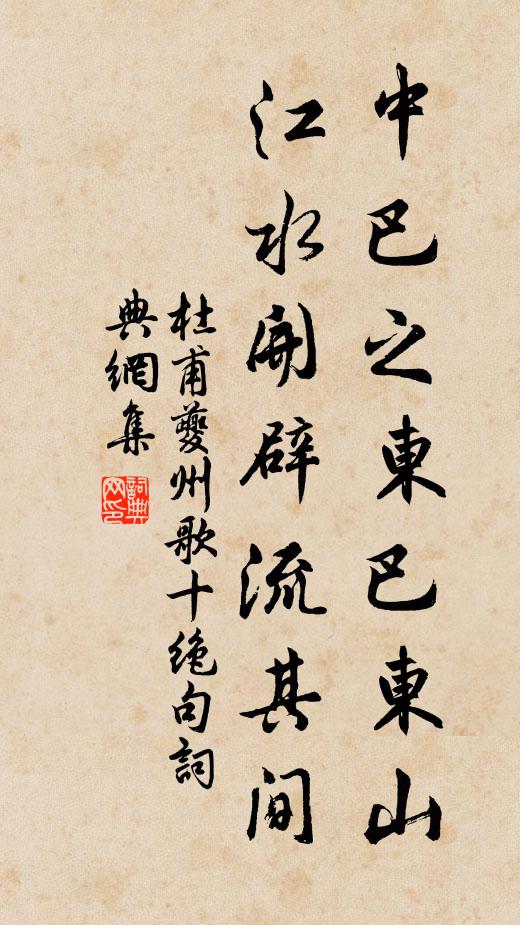 中巴之東巴東山
江水開辟流其間
杜甫夔州歌十絶句詞
典網集
詞典网印